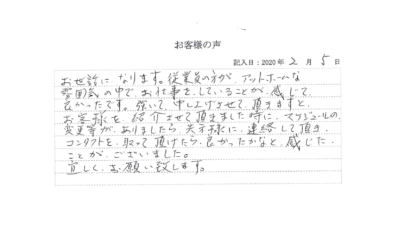 お客様の声
記入日:2020年 2月 5日
お世話になります。従業員の方が、アットホームな
雰囲気の中で、お仕事をしていることが、感じて、
良かったです。強いて申し上げさせて頂きますと、
お客様を紹介させて頂きました時に、スケジュールの
変更等がありましたら、先方様に、連絡して頂き、
コンタクトを取って頂けたら、良かったかなと、感じた
ことがございました。
宜しくお願い致します。